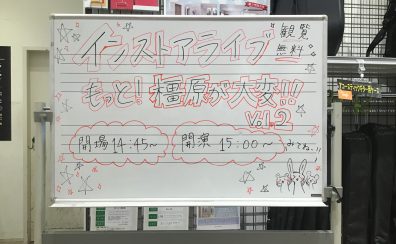 インストアライブ
観覧
無料
もっと!橿原が大変!!
Vol.2
開場 14:45〜
開演 15:00〜
みてね。!!